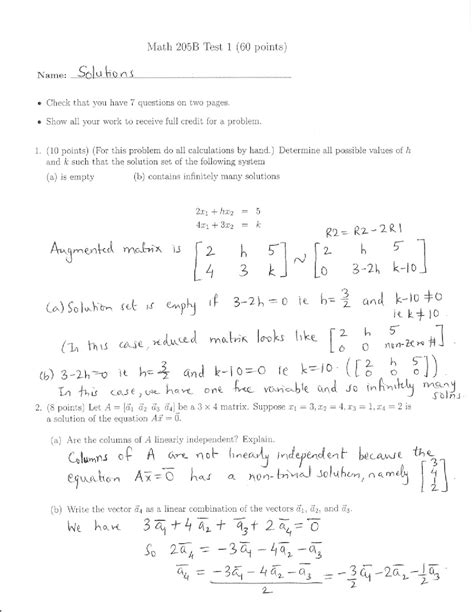 Math 205B Test 1 (60 points)
Name: Solutions
• Check that you have 7 questions on two pages.
• Show all your work to receive full credit for a problem.
1. (10 points) (For this problem do all calculations by hand.) Determine all possible values of h
and k such that the solution set of the following system
(a) is empty (b) contains infinitely many solutions
2x₁ + hx₂ = 5
4x₁ + 3x₂ = k
R2 = R2 - 2R1
Augmented matrix is [2 h 5; 4 3 k] ~ [2 h 5; 0 3-2h k-10]
(a) Solution set is empty if 3-2h = 0 ie h = 3/2 and k-10 ≠ 0
ie k ≠ 10
(In this case, reduced matrix looks like [2 h 5; 0 0 non-zero #]
(b) 3-2h=0 ie h=3/2 and k-10=0 ie k=10. ([2 h 5; 0 0 0])
In this case, we have one free variable and so infinitely many
solns.
2. (8 points) Let A = [a⃗₁ a⃗₂ a⃗₃ a⃗₄] be a 3 × 4 matrix. Suppose x₁ = 3, x₂ = 4, x₃ = 1, x₄ = 2 is
a solution of the equation Ax⃗ = 0⃗.
(a) Are the columns of A linearly independent? Explain.
Columns of A are not linearly independent because the
equation Ax̄ = 0̄ has a non-trivial solution, namely [3; 4; 1; 2]
(b) Write the vector a⃗₄ as a linear combination of the vectors a⃗₁, a⃗₂, and a⃗₃.
We have 3ā₁ + 4ā₂ + ā₃ + 2ā₄ = 0̄
So 2ā₄ = -3ā₁ - 4ā₂ - ā₃
ā₄ = (-3ā₁ - 4ā₂ - ā₃)/2 = -3/2 ā₁ - 2ā₂ - 1/2 ā₃